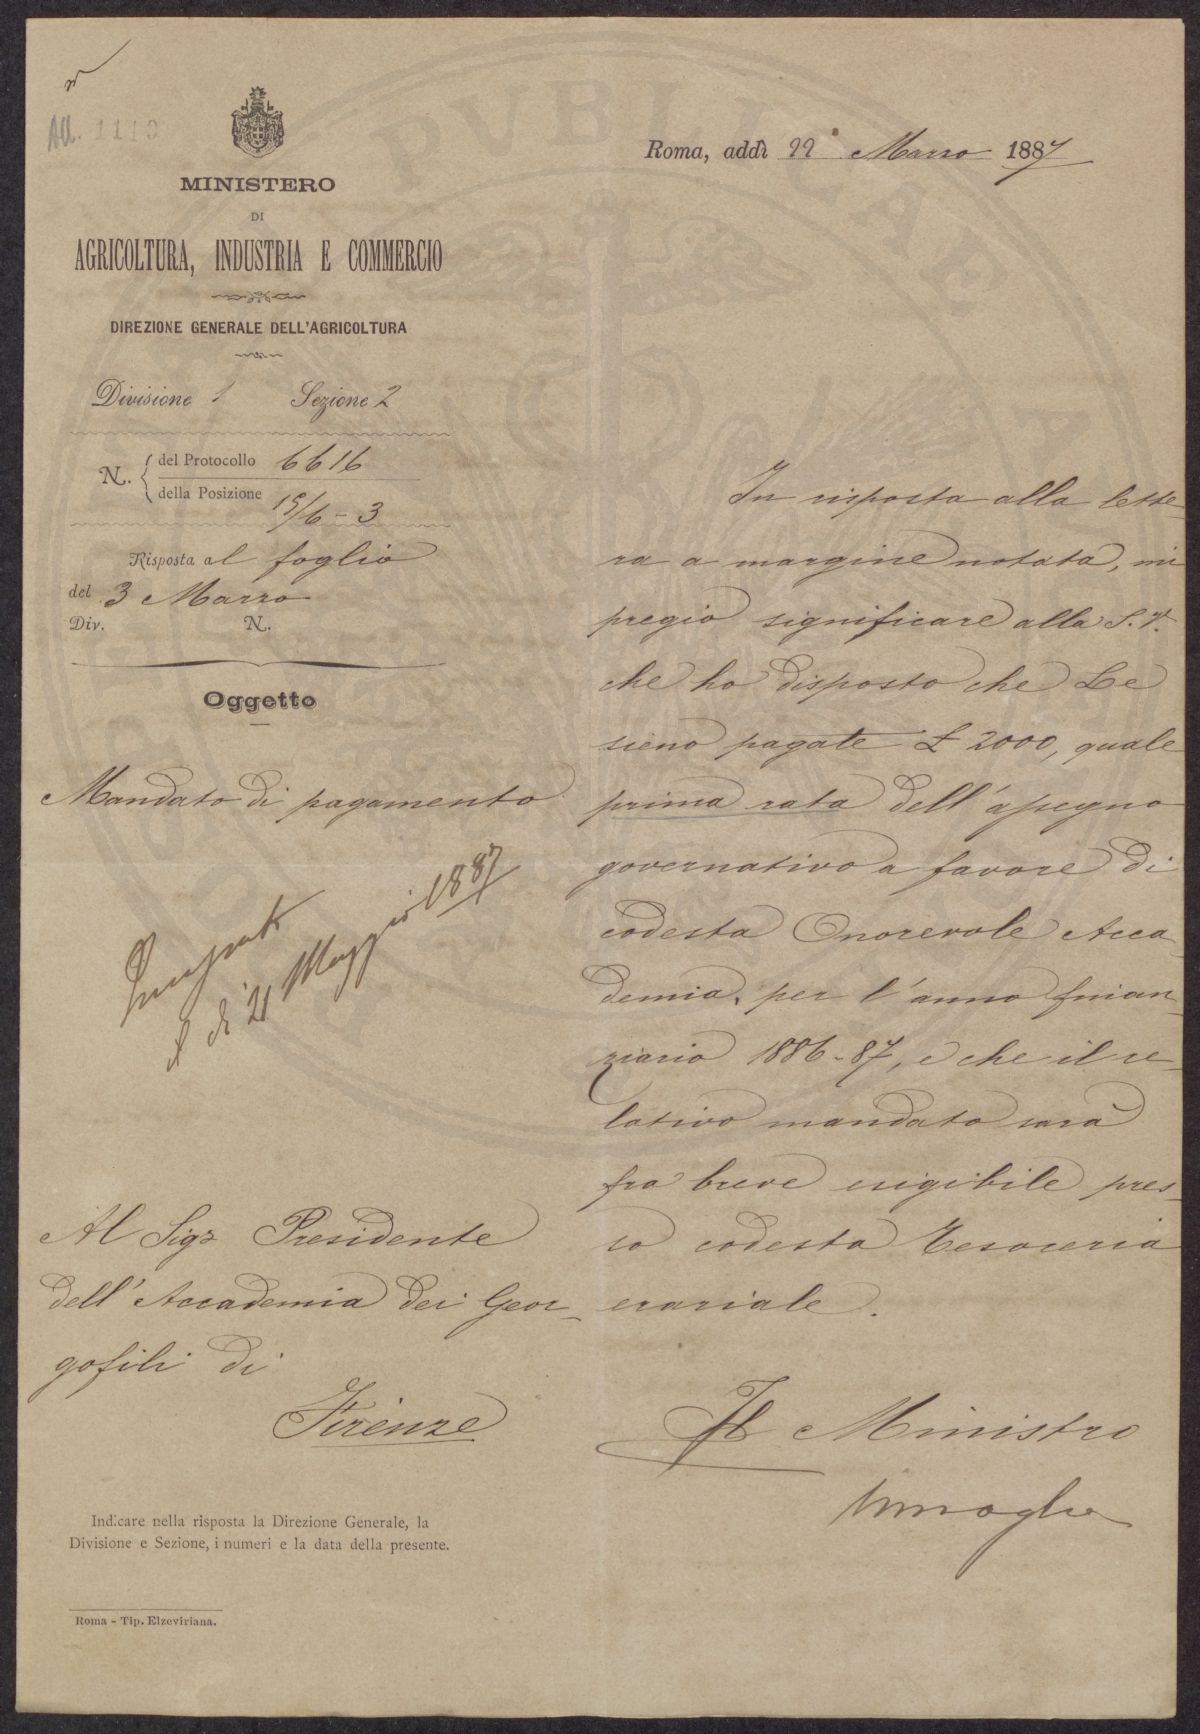 All. 1110
MINISTERO
DI
AGRICOLTURA, INDUSTRIA E COMMERCIO
DIREZIONE GENERALE DELL'AGRICOLTURA
Divisione 1 Sezione 2
N. del Protocollo 6616
della Posizione 15/6-3
Risposta al foglio
del 3 Marzo
Div. N.
Oggetto
Mandato di pagamento
il dì 21 Maggio 1887
Al Sigr Presidente
dell'Accademia dei Geor-
gofili di
Firenze
Indicare nella risposta la Direzione Generale, la
Divisione e Sezione, i numeri e la data della presente.
Roma - Tip. Elzeviriana.
Roma, addì 22 Marzo 1887
In risposta alla lette-
ra a margine notata, mi
pregio significare alla S. V.
che ho disposto che Le
sieno pagate £ 2000, quale
prima rata dell'assegno
governativo a favore di
codesta Onorevole Acca-
demia, per l'anno finan-
ziario 1886-87, e che il re-
lativo mandato sarà
fra breve esigibile pres-
so codesta Tesoreria
erariale.
Il Ministro
PVBLICAE